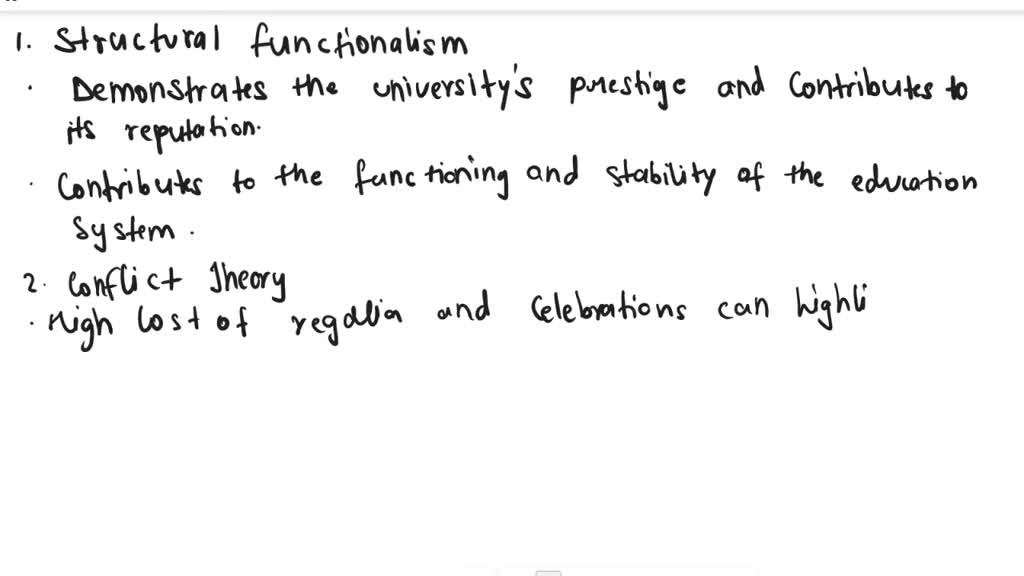 1. Structural functionalism
· Demonstrates the university's prestige and contributes to
its reputation.
· Contributes to the functioning and stability of the education
system.
2. Conflict Theory
· High cost of regalia and celebrations can highli